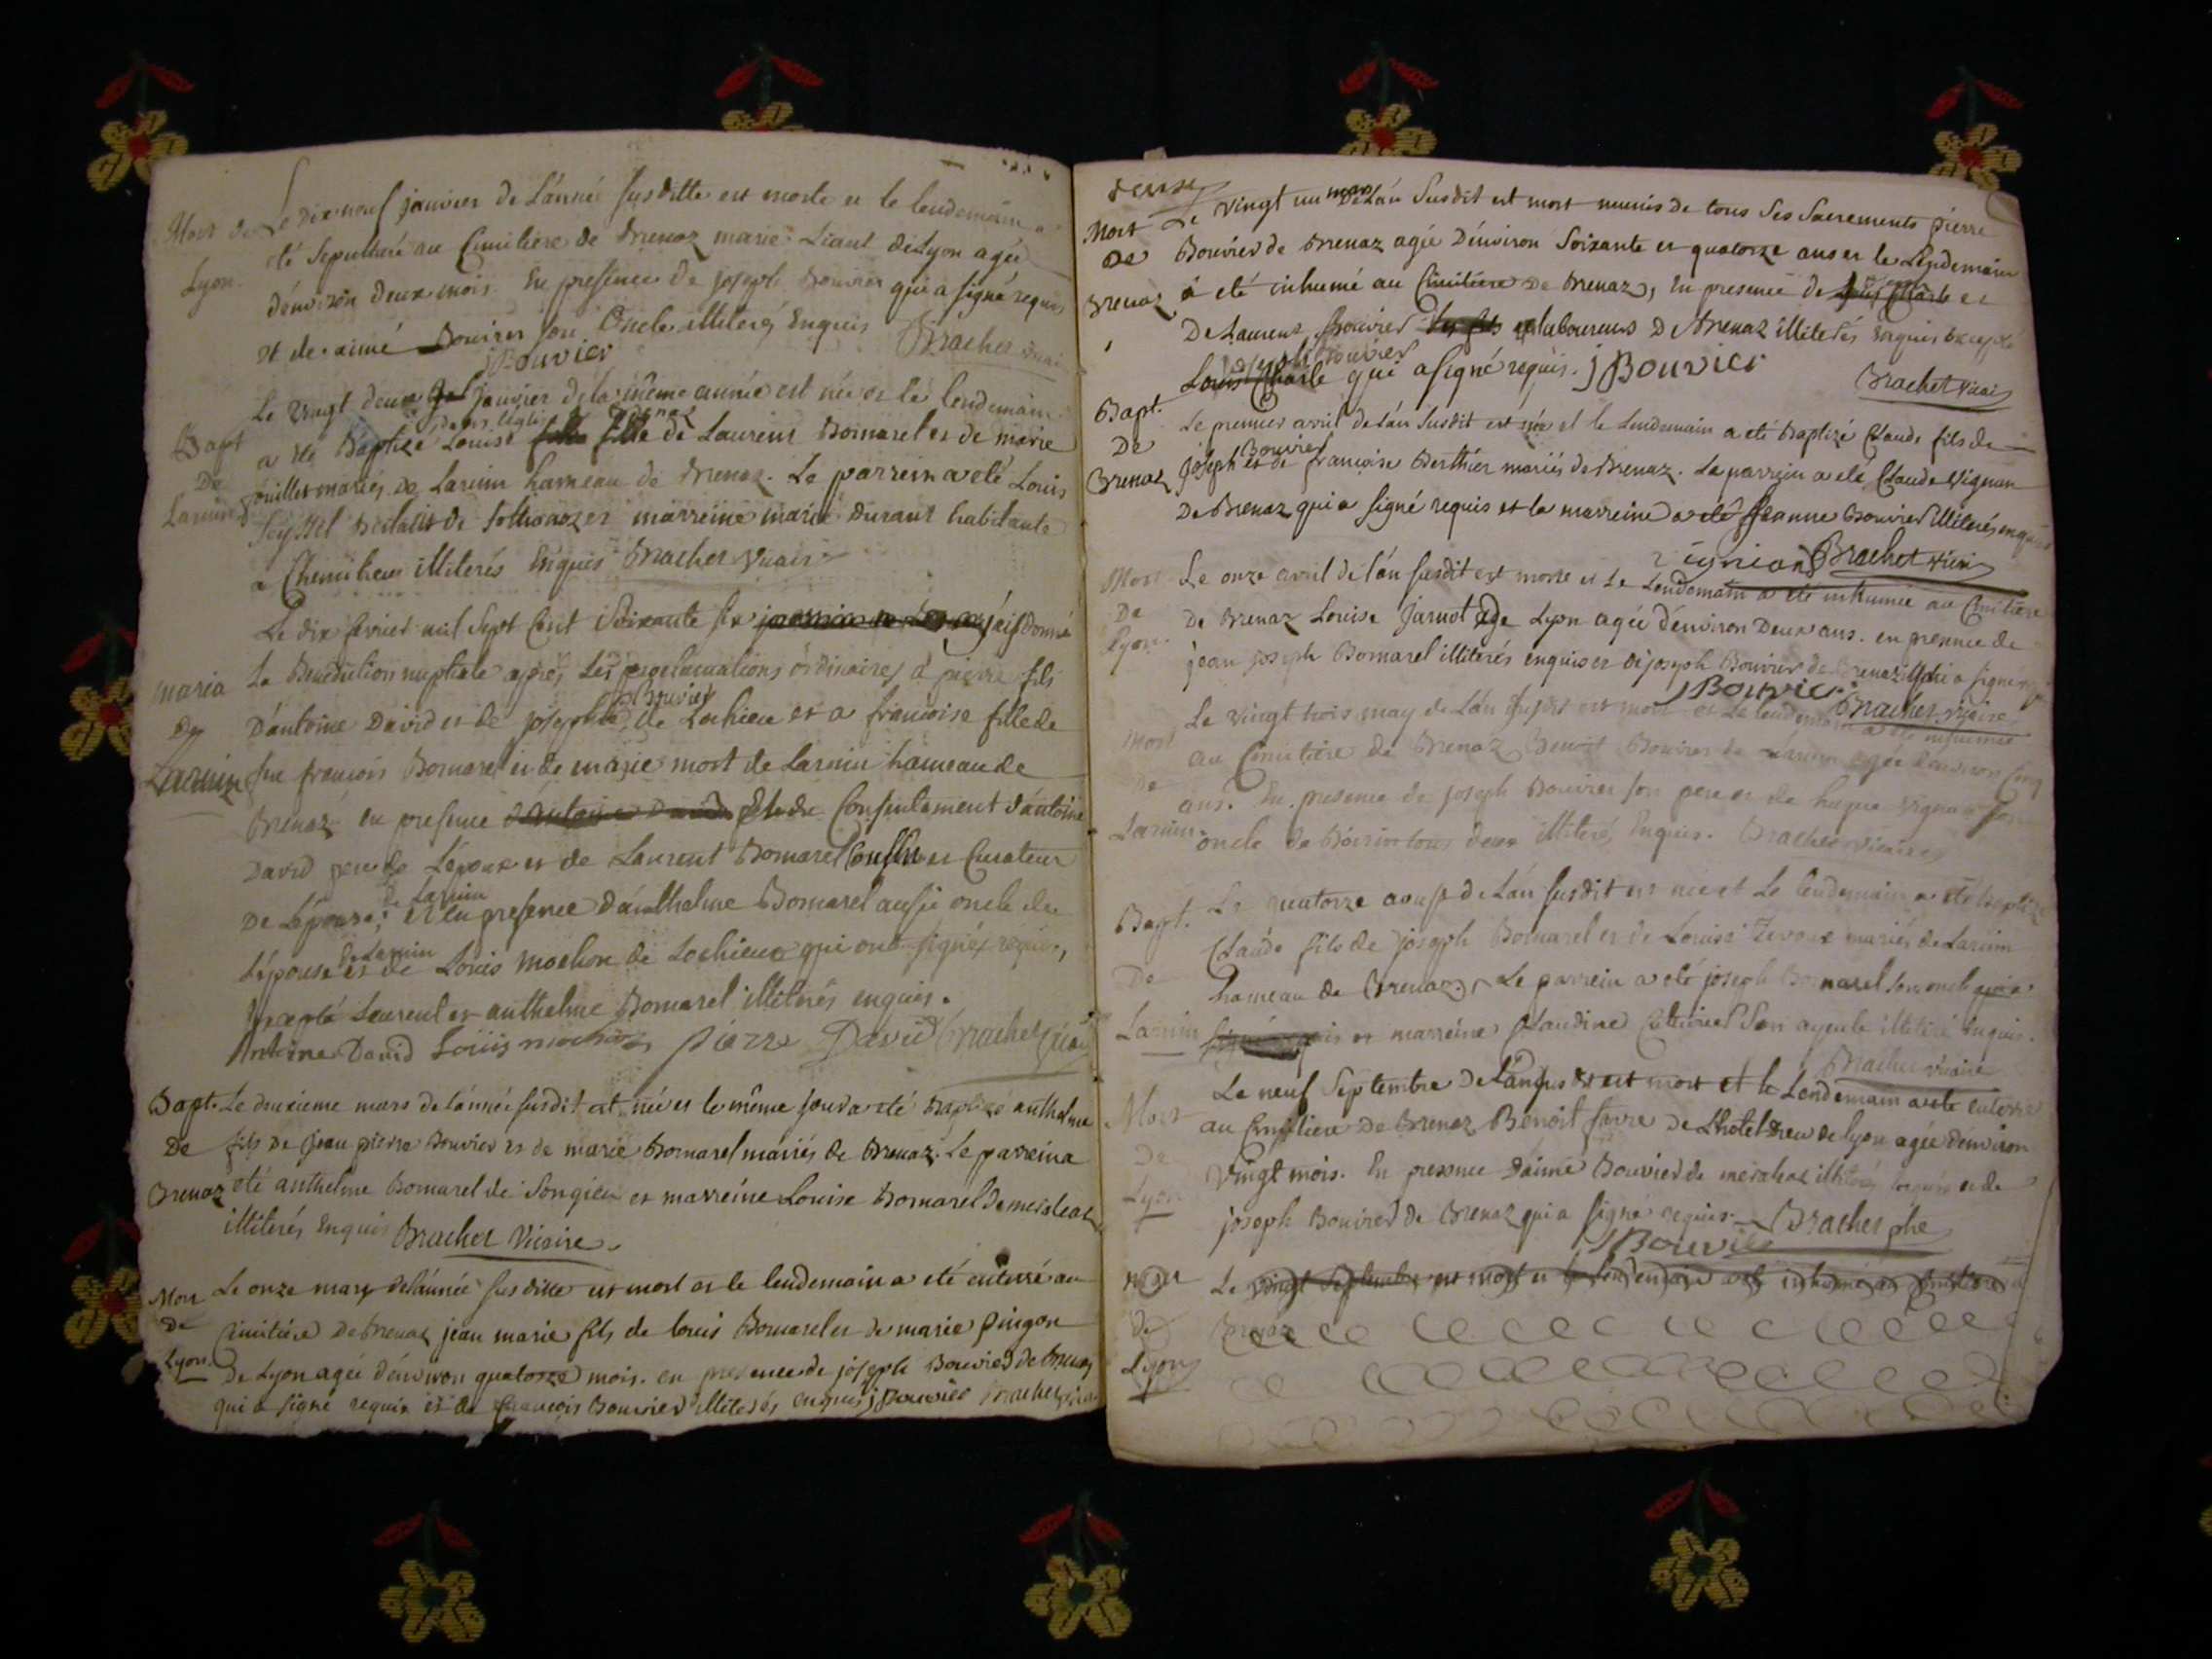 Mort de Lyon.
Le Dix-neuf janvier de L'année susditte est morte et le lendemain a
été sepulturé au Cimitiere de Brenaz marie Liaut de Lyon agée
d'environ deux mois. En presence de joseph Bouvier qui a signé requis
et de aimé Bouvier son Oncle illiteré Enquis Brachet vicai
JBouvier
Bapt De Larnin
Le vingt deux janvier de la même année est née et le lendemain
a été Baptizé dans l'église de Brenaz Louise fille de Laurent Bornarel et de marie
juillet mariés de Larnin hameau de Brenaz. Le parrein a été Louis
Seyssel de Sothonoz et marreine marie Durant habitante
a Chemilieu illiterés Enquis Brachet Vicair
maria de Larnin
Le dix fevrier mil Sept Cent Soixante six j'ai donné
La Benediction nuptiale après Les proclamations ordinaires à pierre fils
D'antoine David et de josephte Bouvier de Lochieu et a francoise fille de
feu francois Bornarel et de marie mort de Larnin hameau de
Brenaz en presence d'antoine David et du Consentement d'antoine
David pere de L'epoux et de Laurent Bornarel et Curateur
De L'epouse; de Larnin et en presence d'anthelme Bornarel aussi oncle de
L'epouse de Larnin et de Louis mochon de Lochieu qui ont signés requis,
Excepté Laurent et anthelme Bornarel illiterés enquis.
Antoine David Louis mochon pierre David Brachet vicai
Bapt. De Brenaz
Le deuxieme mars de l'année susdit est née et le même jour a été Baptizé anthelme
fils de jean pierre Bouvier et de marie Bornarel mariés de Brenaz. Le parrein a
été anthelme Bornarel de Songieu et marreine Louise Bornarel de meraleaz
illiterés Enquis Brachet Vicaire
Mort de Lyon.
Le onze mars de l'année susditte est mort et le lendemain a été enterré au
Cimitiere De Brenaz jean marie fils de louis Bornarel et de marie pingon
De Lyon agée d'environ quatorze mois. en presence de joseph Bouvier de Brenaz
qui a signé requis et de francois Bouvier illiterés enquis jBouvier Brachet vicai
Mort De Brenaz
Le vingt un mars De L'an Susdit est mort munis de tous Ses Sacrements pierre
Bouvier de Brenaz agée D'environ Soixante et quatorze ans et le Lendemain
à été inhumé au Cimitiere De Brenaz, En presence de Louis Charle et
De Laurent Bouvier Ses fils laboureurs De Brenaz illiterés enquis Excepté
joseph Bouvier
Louis Charle qui a signé requis. JBouvier
Brachet vicai
Bapt. De Brenaz
Le premier avril de L'an susdit est née et le Lendemain a été Baptizé Claude fils de
joseph Bouvier et de françoise Berthier mariés de Brenaz. Le parrein a été Claude Vignan
De Brenaz qui a signé requis et la marreine a été jeanne Bouvier illiterés enquis
Brachet vicai
Mort De Lyon
Le onze avril de l'an susdit est morte et le Lendemain a été inhumée au Cimitiere
De Brenaz Louise jarnot de Lyon agée d'environ Deux ans. en presence de
jean joseph Bornarel illiterés enquis et de joseph Bouvier de Brenaz qui a signé
JBouvier Brachet vicaire
Mort De Larnin
Le vingt trois may de L'an susdit est mort et Le lendemain a été inhumé
au Cimitiere de Brenaz Benoit Bouvier de Larnin agée d'environ Cinq
ans. En presence de joseph Bouvier son pere et de hugue vignan son
oncle tous deux illiterés Enquis. Brachet vicaire
Bapt. De Larnin
Le quatorze aoust de L'an susdit est née et Le lendemain a été Baptizé
Claude fils de joseph Bornarel et de Louise mariés de Larnin
hameau de Brenaz. Le parrein a été joseph Bornarel son oncle qui a
et marreine Claudine Son ayeule illiteré Enquis.
Brachet vicaire
Mort De Lyon
Le neuf Septembre De L'an susdit est mort et le Lendemain a été enterré
au Cimitiere De Brenaz Benoit favre de L'hotel Dieu de lyon agée d'environ
Vingt mois. En presence D'aimé Bouvier de illiterés enquis et de
joseph Bouvier de Brenaz qui a signé requis. Brachet
JBouvier
Mort de Lyon
Le vingt Septembre est mort et le lendemain a été inhumé au Cimitiere
Brenaz